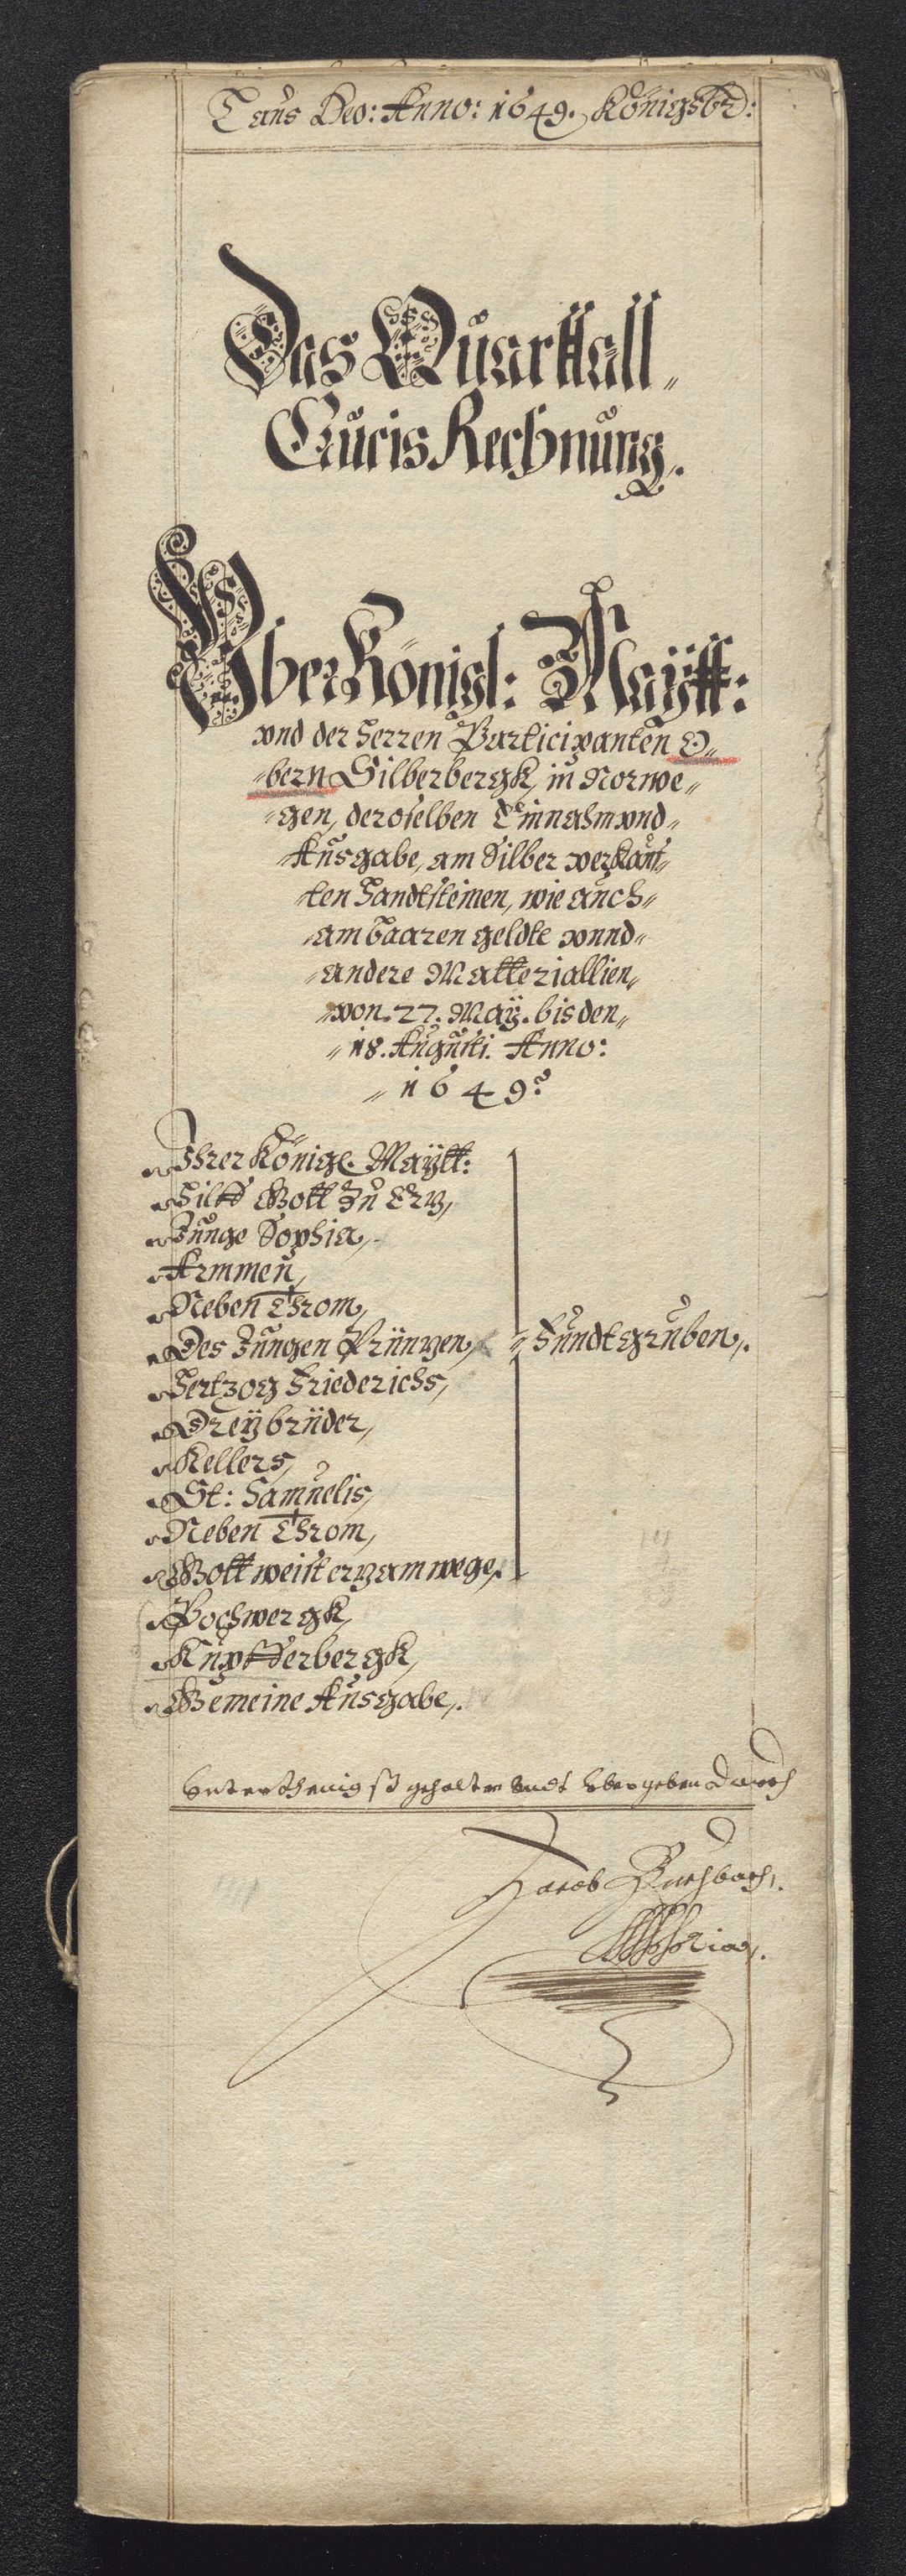 Laus Deo: Anno: 1649. Königsb:
Das Quarttall
Crucis Rechnung.
Vber Königl: Maytt:
vnd der Herren Participanten O-
-bern Silberbergk, in Norwe-
-gen, deroselben Einnahm vnd-
-Ausgabe, am Silber verkauf-
-ten Handtsteinen, wie auch-
-am baaren geldte vnnd-
-andere Matteriallien,
-von. 27. Maÿ. bis den,
-18. Augusti. Anno:
-1649.
Ihrer Königl. Maÿtt:
Hilff Gott Zu Ertz,
Junge Sophia,
Armmen,
Neben Throm,
Des Jungen Printzen,
Fundtgruben,.
Hertzog Friederichs,
Dreÿ brüder,
Kellers,
St: Samuelis,
Neben Throm,
Gott weist ertz am wege,
Pochwergk,
Kupfferbergk,
Gemeine Ausgabe,.
Vnterthenigst gehalten vndt vbergeben durch
Jacob Buchbach,.